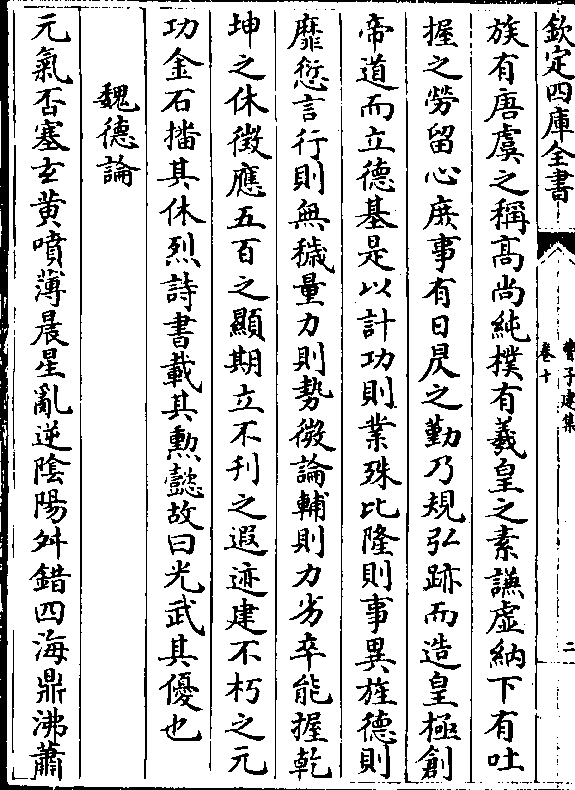 欽定四庫全書
曹子建集
卷十
二
族有唐虞之稱高尚純樸有羲皇之素謙虛納下有吐
握之勞留心庶事有日昃之勤乃規弘跡而造皇極創
帝道而立德基是以計功則業殊比隆則事異旌德則
靡愆言行則無穢量力則勢微論輔則力劣卒能握乾
坤之休徵應五百之顯期立不刋之遐迹建不朽之元
功金石播其休烈詩書載其勲懿故曰光武其優也
魏德論
元氣否塞玄黄噴薄晨星亂逆隂陽舛錯四海鼎沸蕭